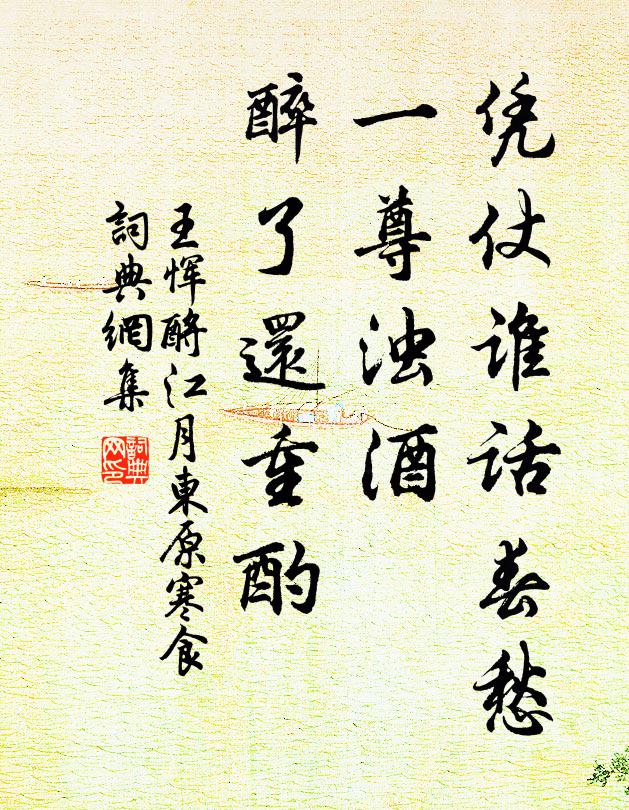 凭仗谁话春愁
一尊浊酒
醉了還重酌
王恽酹江月東原寒食
詞典網集
詞典网印